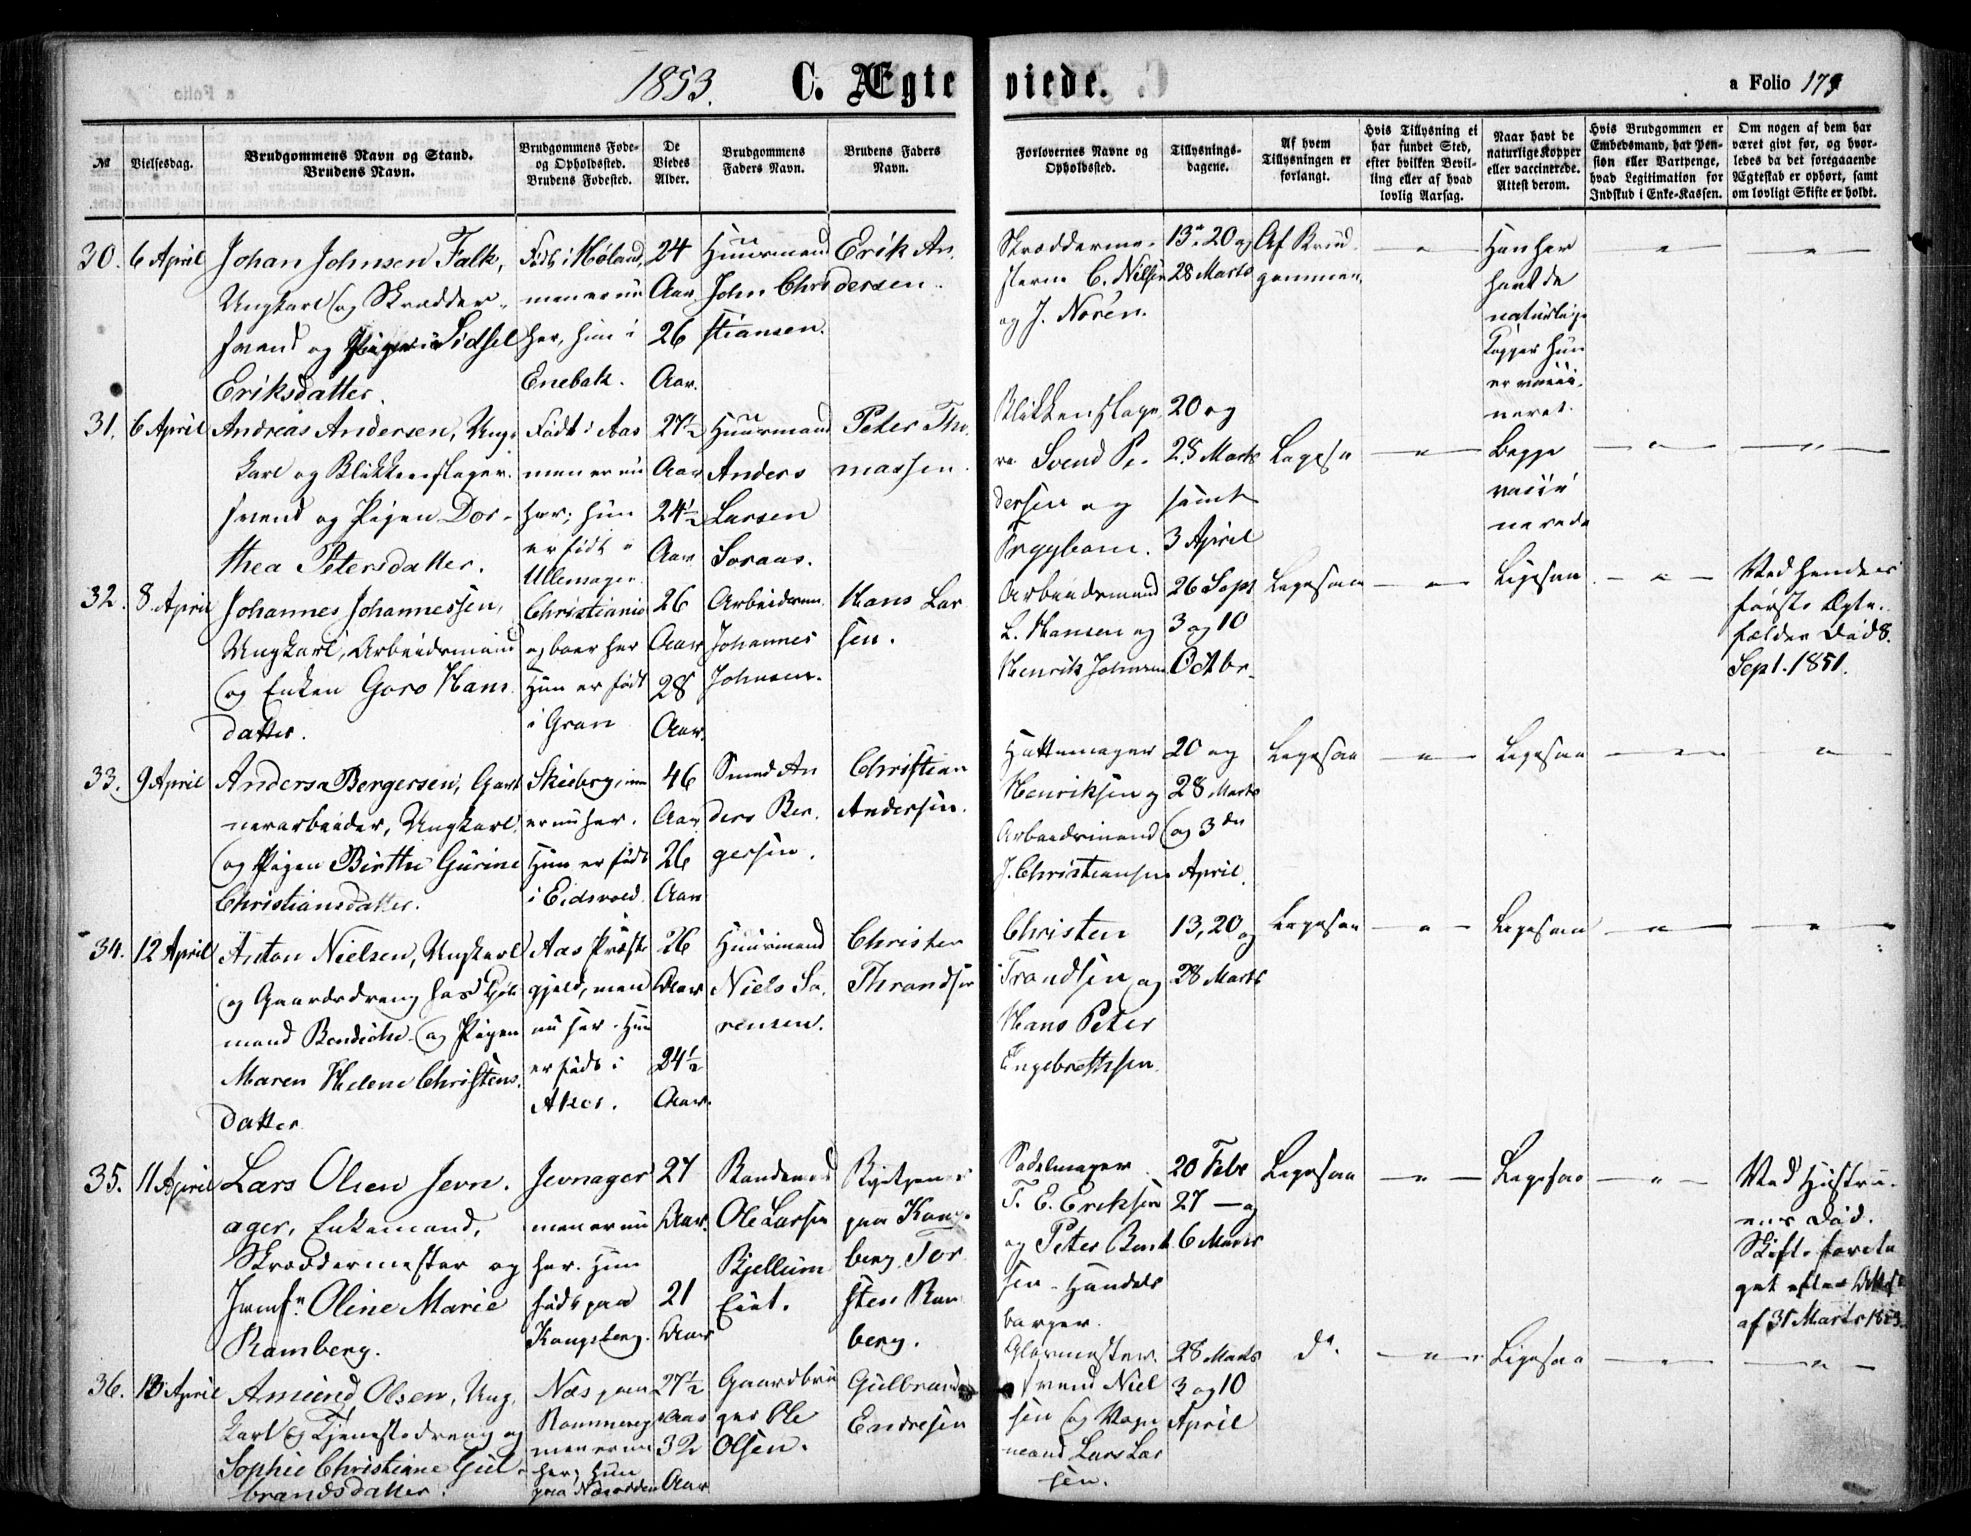 1853.
C. Ægte
viede.
a Folio 179
№
Vielsesdag.
Brudgommens Navn og Stand.
Brudens Navn.
Brudgommens Føde-
og Opholdssted.
Brudens Fødested.
De
Viedes
Alder.
Brudgommens
Faders Navn.
Brudens Faders
Navn.
Forlovernes Navne og
Opholdssted.
Tillysnings-
dagene.
Af hvem
Tillysningen er
forlangt.
Hvis Tillysning ei
har fundet Sted,
efter hvilken Bevil-
ling eller af hvad
lovlig Aarsag.
Naar havt de
naturlige Kopper
eller vaccinerede.
Attest derom.
Hvis Brudgommen er
Embedsmand, har Pen-
sion eller Vartpenge,
hvad Legitimation for
Indskud i Enke-Kassen.
Om nogen af dem har
været givt før, og hvor-
ledes da det foregaaende
Ægteskab er ophørt, samt
om lovligt Skifte er holdt.
30.
6 April
Johan Johnsen Falk,
Ungkarl og Skrædder-
svend og Pigen Sidsel
Eriksdatter.
Født i Høland,
men er nu
her, hun i
Enebak.
24
Aar
26
Aar.
Huusmand
John Chri
stiansen.
Erik An.
dersen.
Skrædderme-
sterne C. Nilsen
og J. Norén.
13, 20 og
28 Marts
Af Brud
gommen.
Han har
havt de
naturlige
Kopper hun
er vacci-
neret.
31.
6 April
Andreas Andersen, Ung-
karl og Blikkenslager-
svend og Pigen Dor-
thea Petersdatter.
Født i Aas
men er nu
her; hun
er født i
Ullensager.
27½
Aar
24½
Aar
Huusmand
Anders
Larsen
Soraas.
Peter Tho
massen.
Blikkenslage
re Svend Pe-
dersen og
20 og
28 Marts
samt
3 April
Ligesa
Begge
vacci
nerede
32.
8 April
Johannes Johannessen,
Ungkarl, Arbeidsmand
og Enken Goro Hans
datter.
Christiania
og boer her
Hun er født
i Gran
26
Aar
28
Aar.
Arbeidsm.
Johannes
Johnsen.
Hans Lar
sen.
Arbeidsmand
L. Hansen og
Henrik Johnsen
26 Sept
3 og 10
Octbr.
Ligesaa
Ligesaa
Ved hendes
første Ægte-
fælles Død 8
Sept. 1851.
33.
9 April
Anders Bergersen, Gart
nerarbeider, Ungkarl
og Pigen Birthe Gurine
Christiansdatter.
Skieberg, men
er nu her.
Hun er født
i Eidsvold
46
Aar
26
Aar
Smed An
ders Ber.
gersen.
Christian
Andersen.
Hattemager
Henriksen og
Arbeidsmand
J. Christiansen
20 og
28 Marts
og 3 dn
April.
Ligesaa
Ligesaa
34.
12 April
Anton Nielsen, Ungkarl
og Gaardsdreng hos Kjøb
mand Bendiche og Pigen
Maren Helene Christens.
datter
Aas Præste
gjeld, men
nu her. Hun
er født i
Aker.
26
Aar
24½
Aar.
Huusmand
Niels Sø.
rensen.
Christen
Thrandsen
Christen
Trandsen og
Hans Peter
Engebrethsen
13, 20 og
28 Marts
Ligesaa
Ligesaa
35.
11 April
Lars Olsen Jevn.
ager, Enkemand,
Skræddermester og
Jomfr. Oline Marie
Ramberg.
Jevnager
men er nu
her. Hun
født paa
Kongsberg.
27
Aar.
21
Aar
Bondemand
Ole Larsen
Kjellum
Eiet.
paa Kongs-
berg Tor
sten Ram
berg.
Sadelmager
T. E. Eriksen
og Peter Bent
sen Handels
borger.
20 Febr
27 — og
6 Marts
Ligesaa
Ligesaa
Ved Hustru.
ens Død.
Skifte foreta
get efter Attest
af 31 Marts 1853.
36.
13 April
Amund Olsen, Ung
karl og Tjenestedreng og
Sophie Christiane Gul-
brandsdatter.
Næs paa
Romerige
men er nu
her; hun
paa Næsodden
27½
Aar
32
Aar
Gaardbru
ger Ole
Olsen.
Gulbrand
Endresen
Glarmester
svend Niel
sen og Vogn
mand Lars Lar
sen.
28 Marts
3 og 10
April
do.
Ligesaa